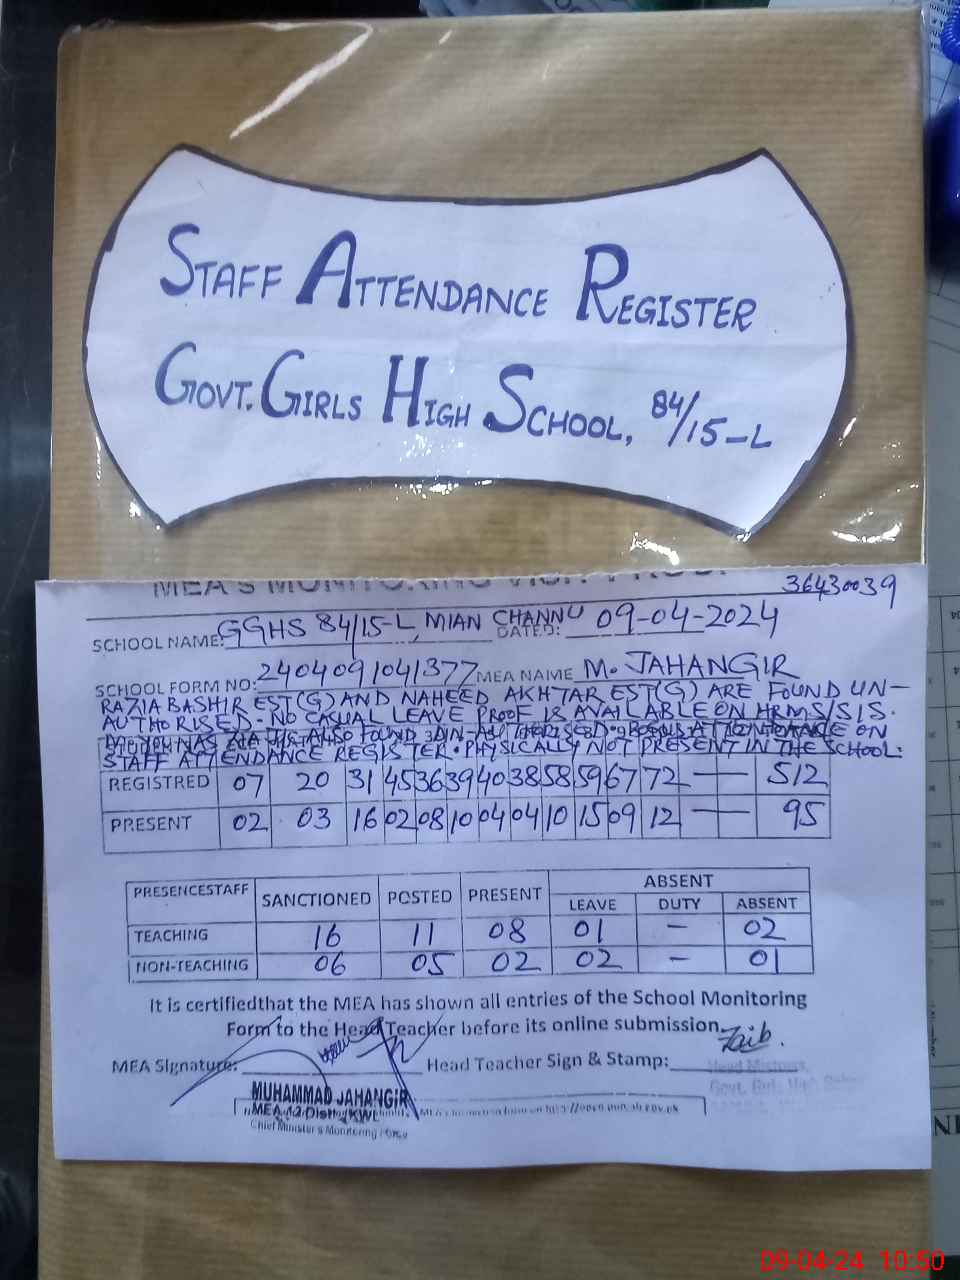 STAFF ATTENDANCE REGISTER
GOVT. GIRLS HIGH SCHOOL, 84/15-L
MEA'S MONITORING VISIT PROOF
36430039
SCHOOL NAME: GGHS 84/15-L, MIAN CHANNU DATED: 09-04-2024
SCHOOL FORM NO: 2404091041377 MEA NAME M. JAHANGIR
RAZIA BASHIR EST(G) AND NAHEED AKHTAR EST(G) ARE FOUND UN-
AUTHORISED. NO CASUAL LEAVE PROOF IS AVAILABLE ON HRMS/SIS.
ALSO FOUND UN-AUTHORISED. BOGUS ATTENDANCE ON
STAFF ATTENDANCE REGISTER. PHYSICALLY NOT PRESENT IN THE SCHOOL.
REGISTRED 07 20 31 45 36 39 40 38 58 59 67 72 — 512
PRESENT 02 03 16 02 08 10 04 04 10 15 09 12 — 95
PRESENCESTAFF SANCTIONED POSTED PRESENT ABSENT
LEAVE DUTY ABSENT
TEACHING 16 11 08 01 - 02
NON-TEACHING 06 05 02 02 - 01
It is certifiedthat the MEA has shown all entries of the School Monitoring
Form to the Head Teacher before its online submission.
MEA Signature: Head Teacher Sign & Stamp: Zaib.
Head Mistress
Govt. Girls High School
MUHAMMAD JAHANGIR
MEA 12 Distt. KWL
Chief Minister's Monitoring Force
09-04-24 10:50